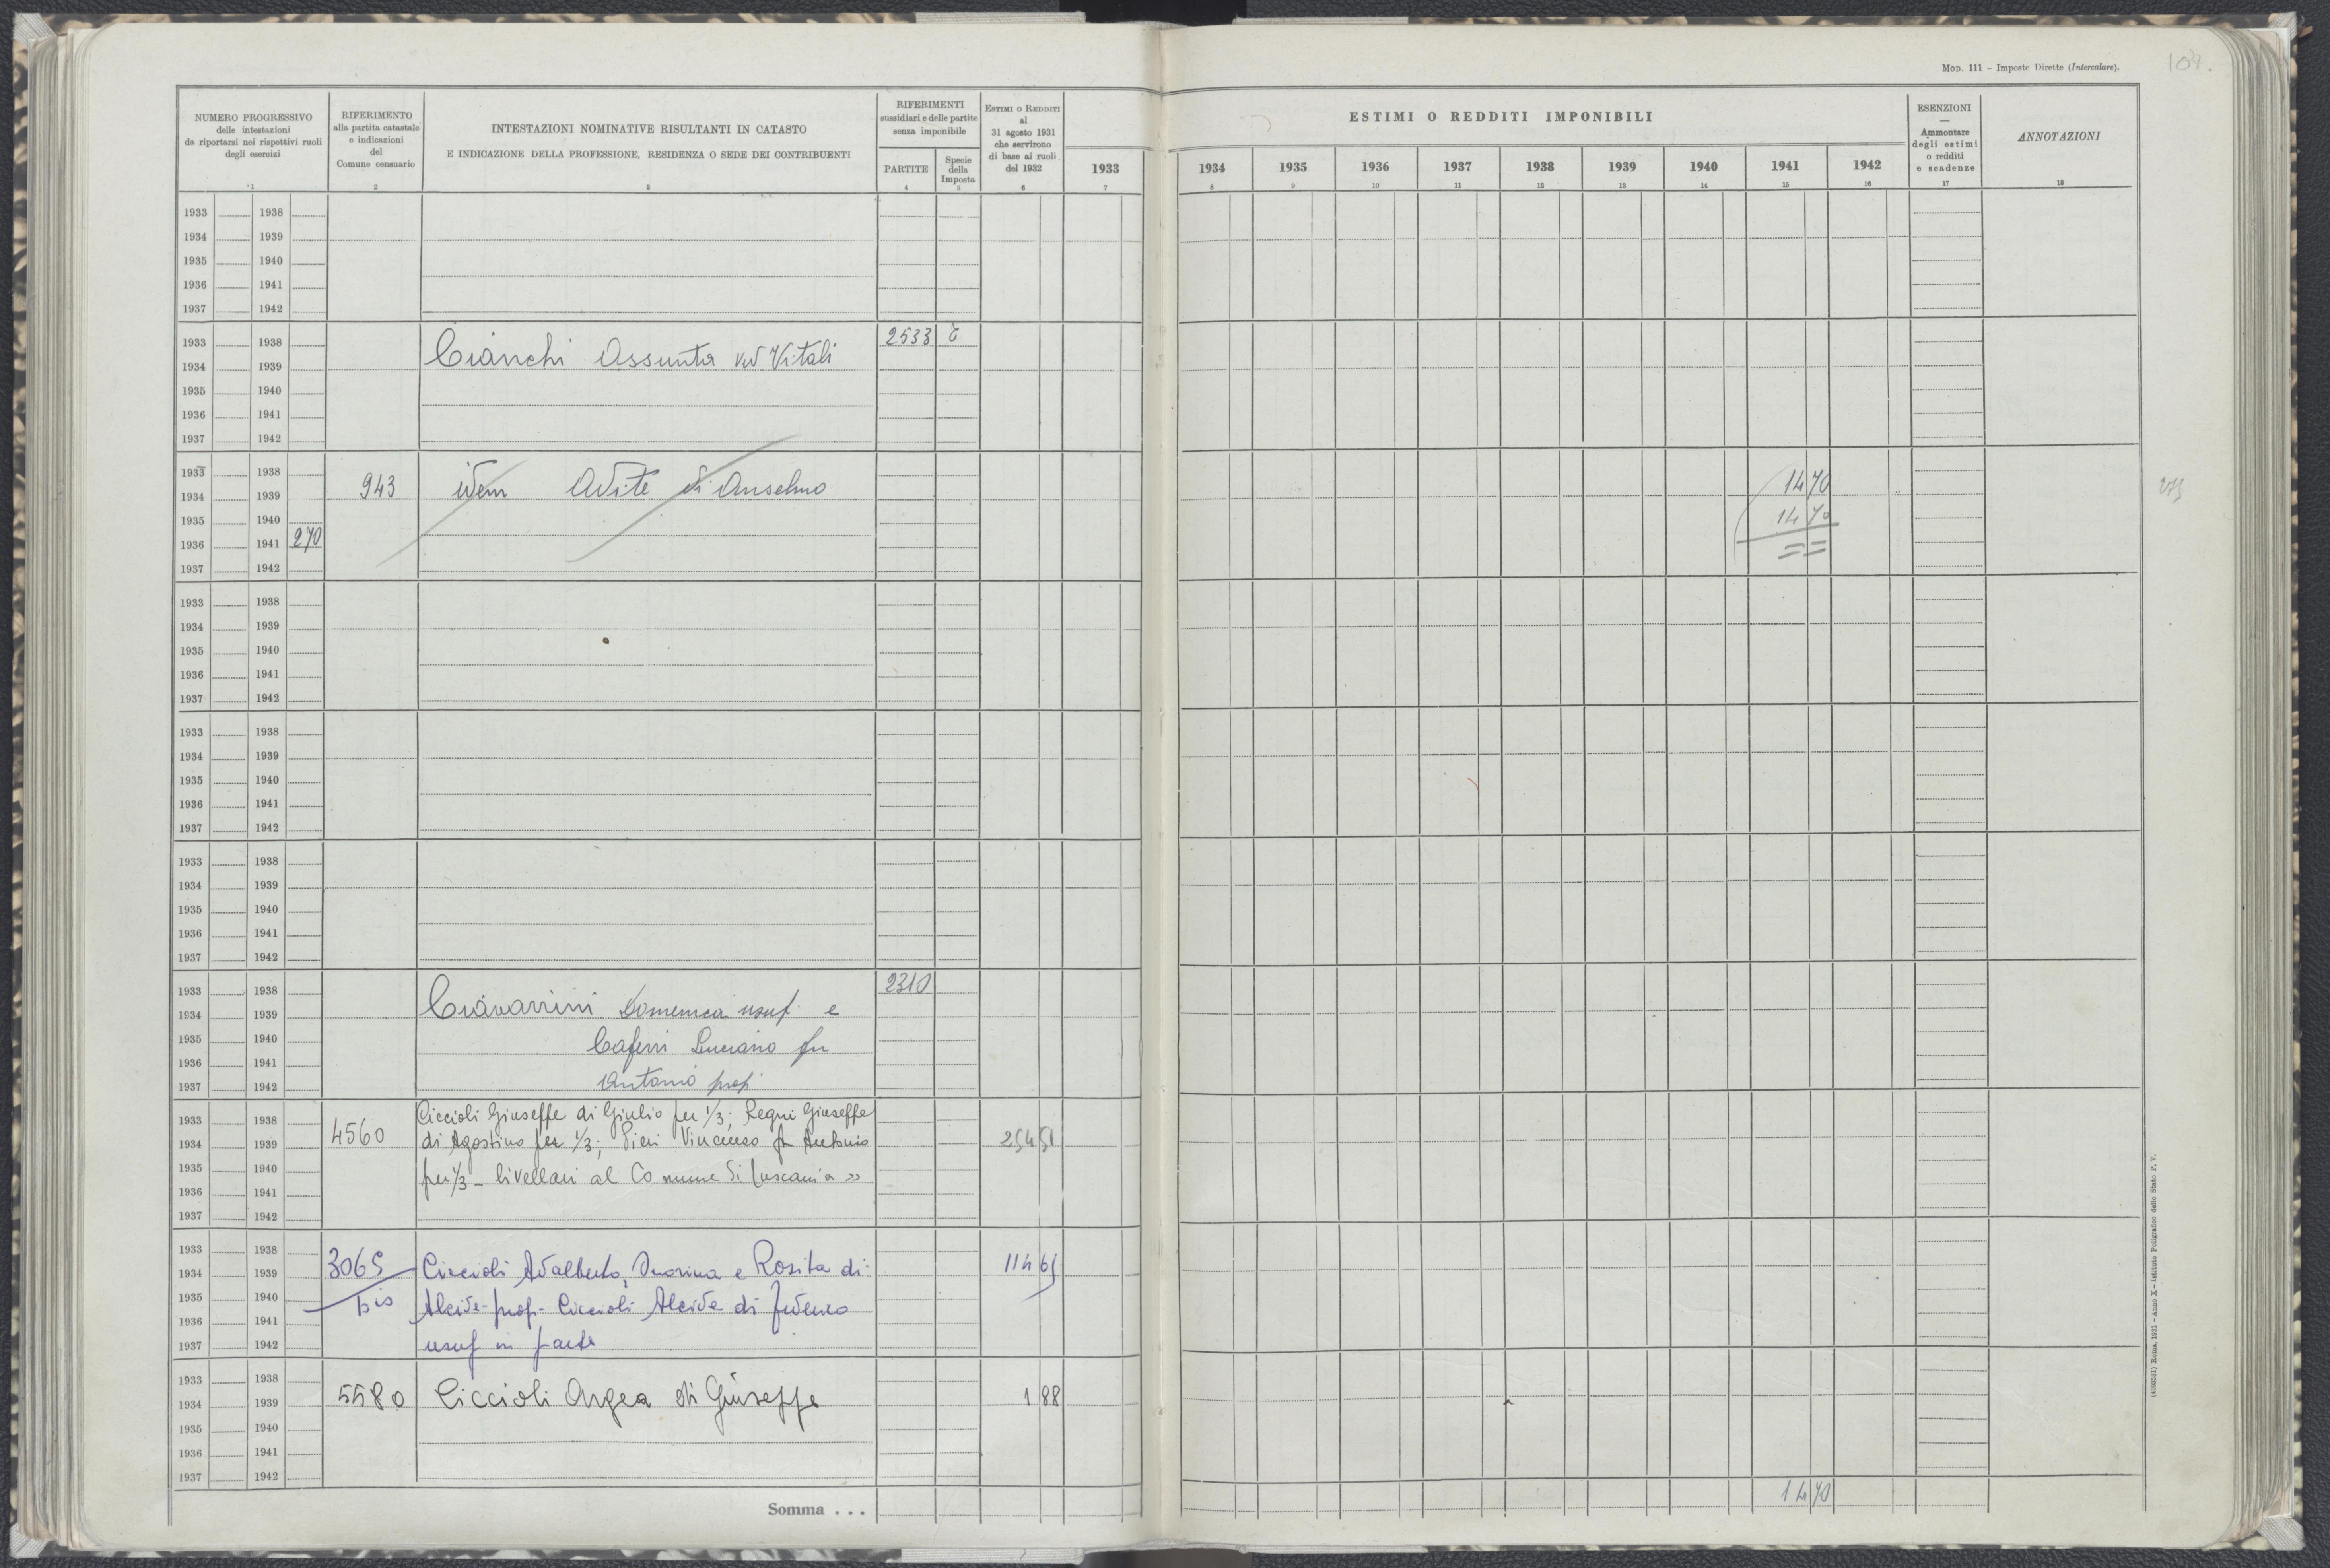 Mod. 111 – Imposte Dirette (Intercalare).
104.
NUMERO PROGRESSIVO
delle intestazioni
da riportarsi nei rispettivi ruoli
degli esercizi
RIFERIMENTO
alla partita catastale
e indicazioni
del
Comune censuario
INTESTAZIONI NOMINATIVE RISULTANTI IN CATASTO
E INDICAZIONE DELLA PROFESSIONE, RESIDENZA O SEDE DEI CONTRIBUENTI
RIFERIMENTI
sussidiari e delle partite
senza imponibile
PARTITE
Specie
della
Imposta
Estimi o Redditi
al
31 agosto 1931
che servirono
di base ai ruoli
del 1932
ESTIMI O REDDITI IMPONIBILI
1933 1934 1935 1936 1937 1938 1939 1940 1941 1942
ESENZIONI
—
Ammontare
degli estimi
o redditi
e scadenze
ANNOTAZIONI
1 2 3 4 5 6 7 8 9 10 11 12 13 14 15 16 17 18
1933 1938
1934 1939
1935 1940
1936 1941
1937 1942
1933 1938 2533
1934 1939 Cianchi Assunta ved Vitali
1935 1940
1936 1941
1937 1942
1933 1938
1934 1939 943 idem Adite di Anselmo 14 70
1935 1940 14 70
1936 1941 270
1937 1942
1933 1938
1934 1939
1935 1940
1936 1941
1937 1942
1933 1938
1934 1939
1935 1940
1936 1941
1937 1942
1933 1938
1934 1939
1935 1940
1936 1941
1937 1942
1933 1938 2310
1934 1939 Ciavarrini Domenica usuf. e
1935 1940 Caferri Luciano fu
1936 1941
1937 1942 Antonio prop
1933 1938 Ciccioli Giuseppe di Giulio per 1/3; Regni Giuseppe
1934 1939 4560 di Agostino per 1/3; Pieri Vincenzo fu Antonio 254 51
1935 1940 per 1/3 – livellari al Comune di Tuscania »
1936 1941
1937 1942
1933 1938
1934 1939 3065 Ciccioli Adalberto, e Rosita di 114 65
1935 1940 bis Alcide – prop – Ciccioli Alcide di
1936 1941
1937 1942 usuf in parte
1933 1938
1934 1939 5580 Ciccioli Argea di Giuseppe 1 88
1935 1940
1936 1941
1937 1942
Somma . . . 14 70
(4103551) Roma, 1931 – Anno X – Istituto Poligrafico dello Stato P. V.